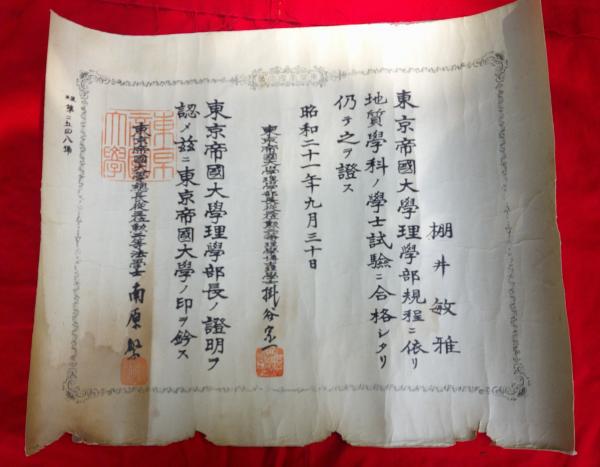 棚井敏雅
東京帝國大學理學部規程ニ依リ
地質學科ノ學士試驗ニ合格シタリ
仍テ之ヲ證ス
昭和二十一年九月三十日
東京帝國大學理學部長從三位勳二等理學博士掛谷宗一
東京帝國大學理學部長ノ證明ヲ
認メ茲ニ東京帝國大學ノ印ヲ鈐ス
東京帝國大學總長從三位勳二等法學士南原繁
第二五四八號